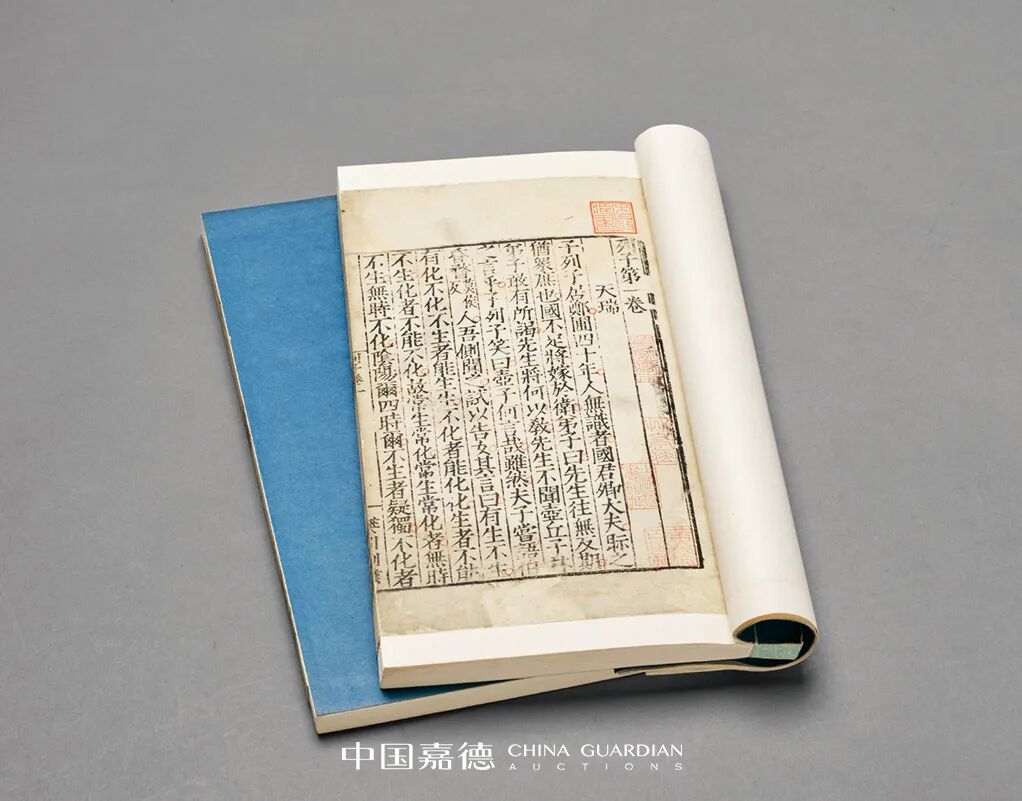 列子第一卷
天瑞
子列子居鄭圃四十年人無識者國君卿大夫眎之
猶衆庶也國不足將嫁於衛弟子曰先生往無反期
弟子敢有所謁先生將何以教先生不聞壺丘子林
之言乎子列子笑曰壺子何言哉雖然夫子嘗語伯
昏瞀莫侯人吾側聞之試以告女其言曰有生不生
有化不化不生者能生生不化者能化化生者不能
不生化者不能不化故常生常化常生常化者無時
不生無時不化陰陽爾四時爾不生者疑獨不化者
中国嘉德 CHINA GUARDIAN
AUCTIONS